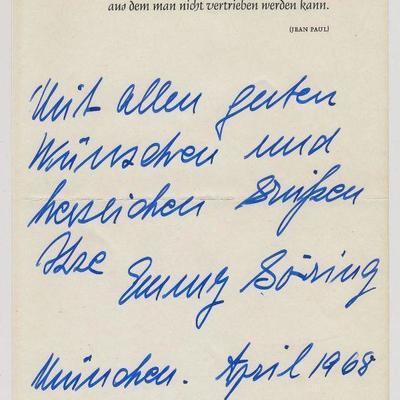 aus dem man nicht vertrieben werden kann.
(JEAN PAUL)
Mit allen guten
Wünschen und
herzlichen Grüßen
Ihre
Emmy Göring
München. April 1968